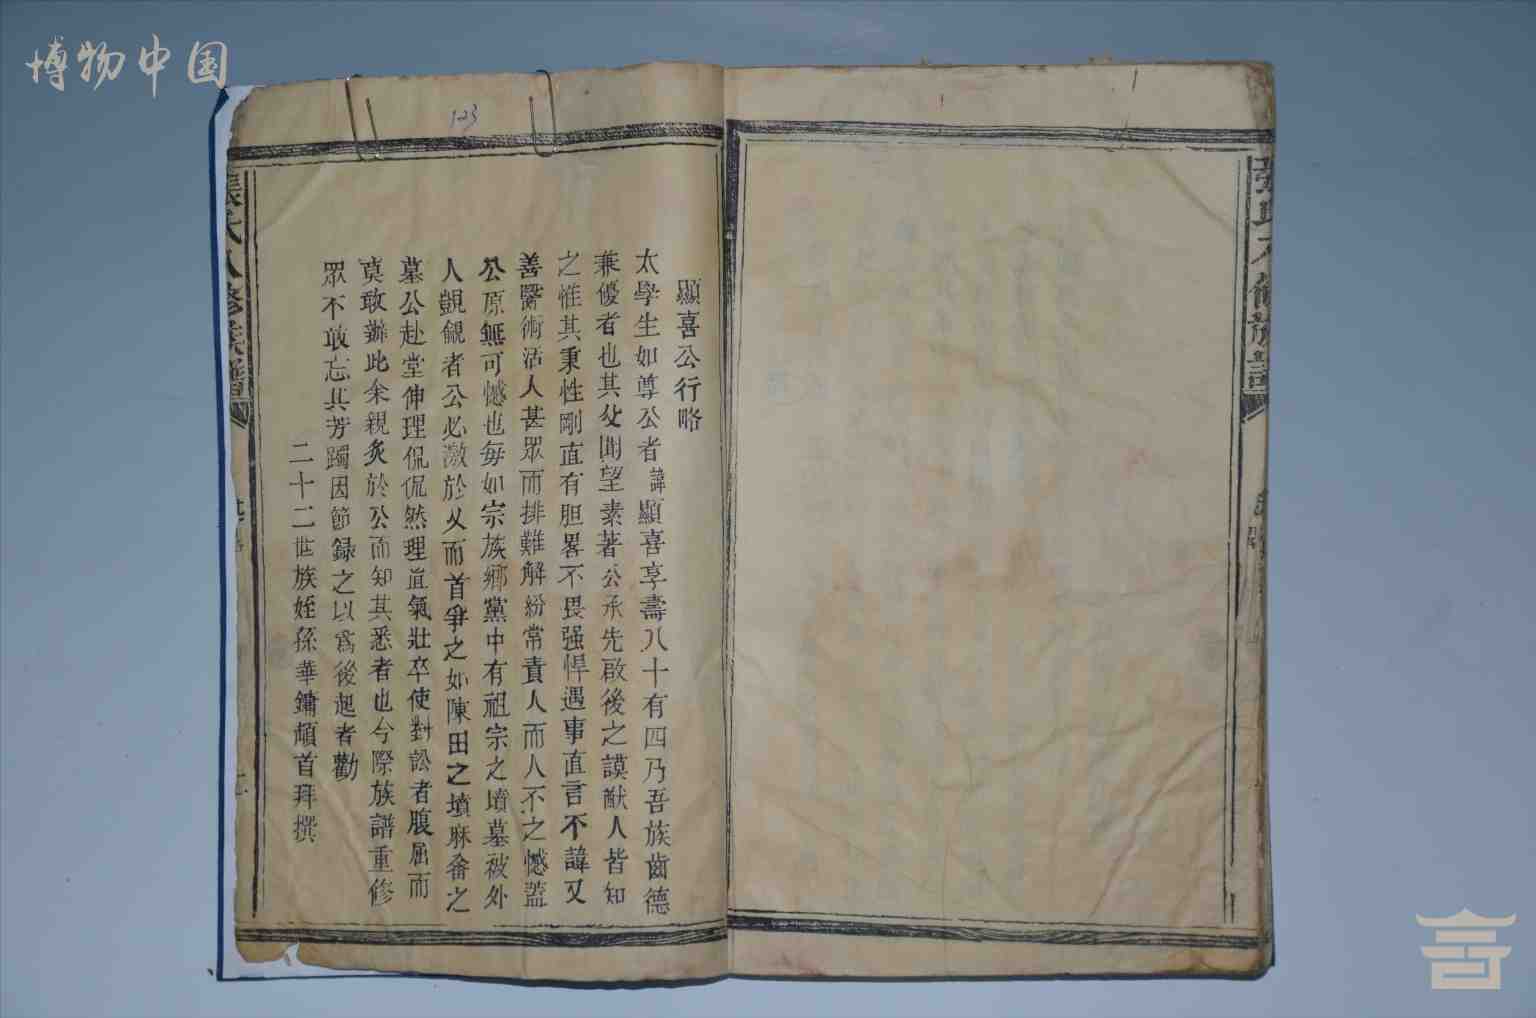 博物中国
123
張氏八修族譜
顯喜公行略
太學生如尊公者諱顯喜享壽八十有四乃吾族齒德
兼優者也其父聞望素著公承先啟後之謨猷人皆知
之惟其秉性剛直有胆畧不畏强悍遇事直言不諱又
善醫術活人甚眾而排難解紛常責人而人不之憾蓋
公原無可憾也毎如宗族鄉黨中有祖宗之墳墓被外
人覬覦者公必激於义而首爭之如陳田之墳麻畬之
墓公赴堂伸理侃侃然理直氣壯卒使對訟者腹屈而
莫敢辦此余親炙於公而知其悉者也今際族譜重修
眾不敢忘其芳躅因節録之以爲後起者勸
二十二世族姪孫華鏞頓首拜撰